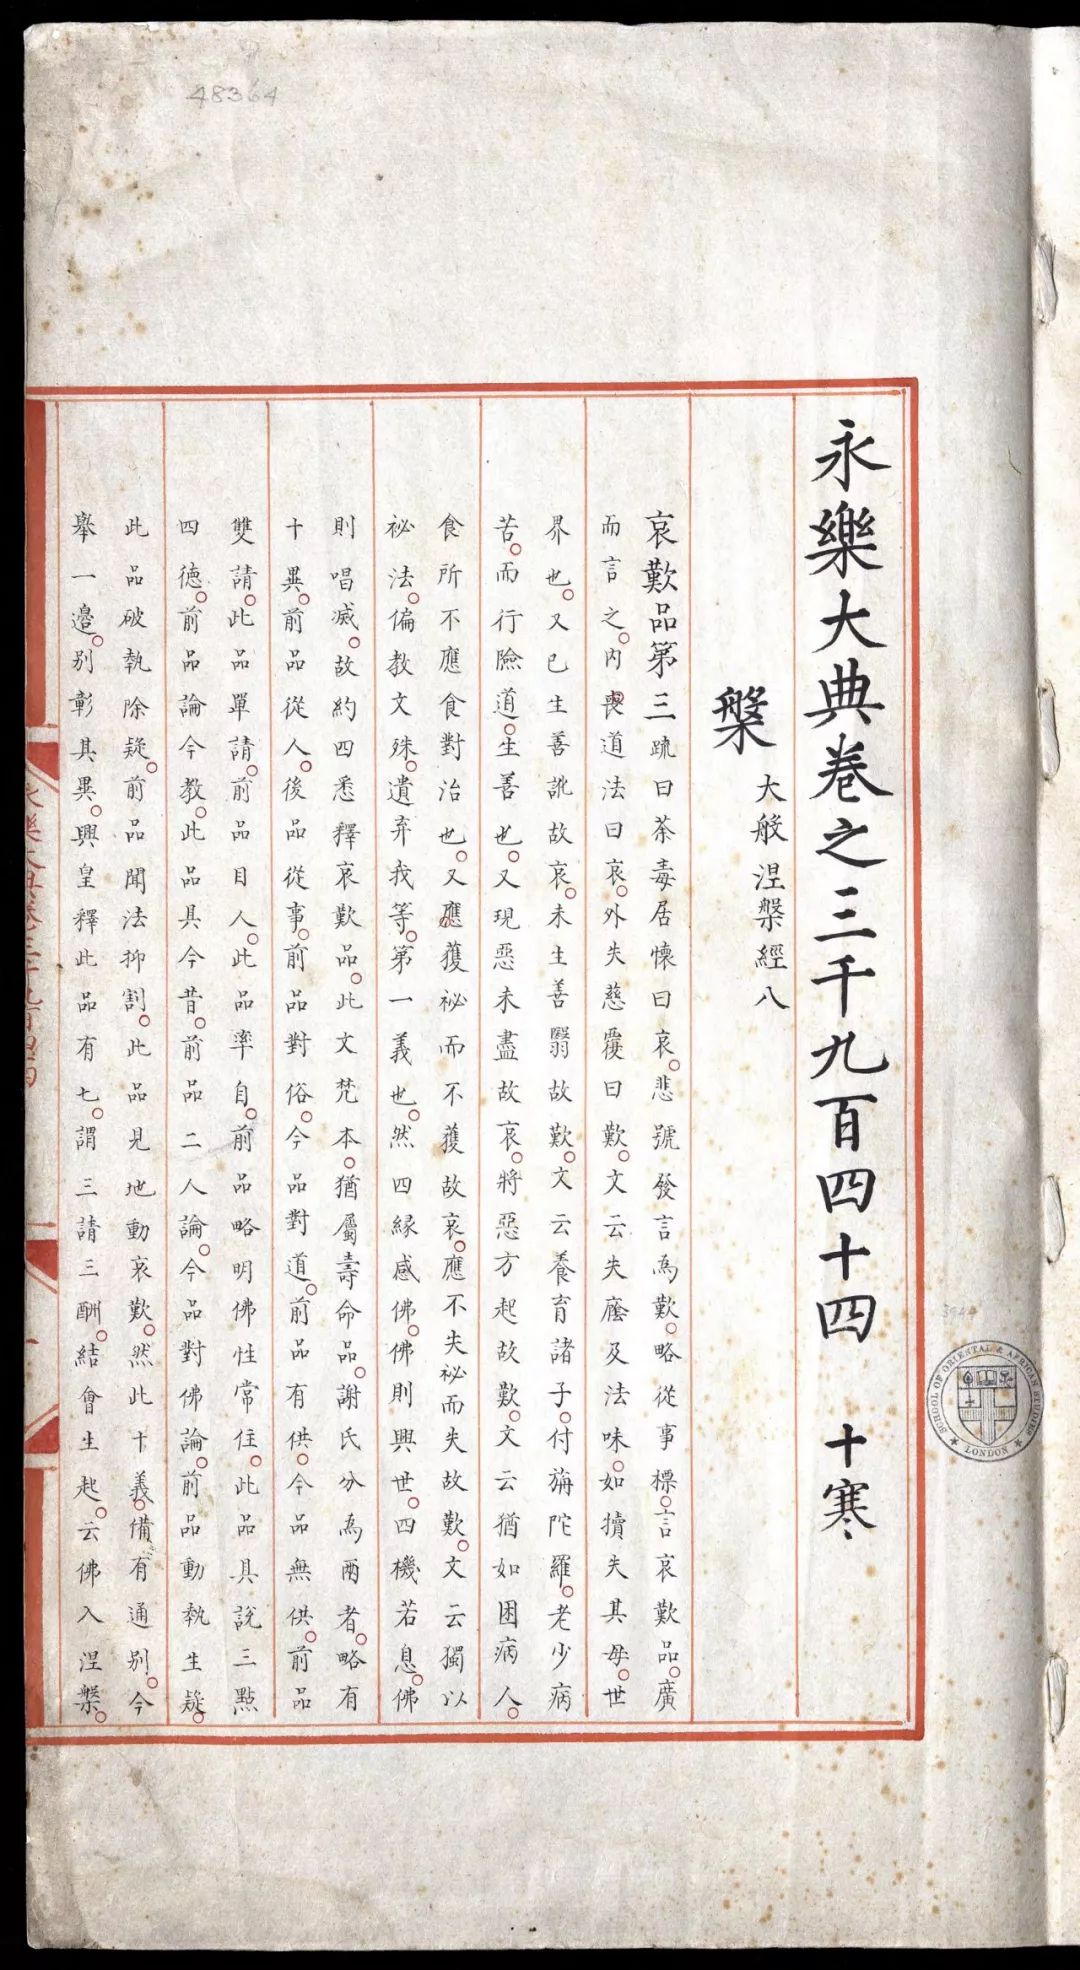 48364
永樂大典卷之三千九百四十四 十寒
槃 大般涅槃經八
哀歎品第三疏曰荼毒居懷曰哀。悲號發言為歎。略從事標。言哀歎品。廣
而言之。内喪道法曰哀。外失慈覆曰歎。文云失廕及法味。如犢失其母。世
界也。又已生善訛故哀。未生善翳故歎。文云養育諸子。付旃陀羅。老少病
苦。而行險道。生善也。又現惡未盡故哀。將惡方起故歎。文云猶如困病人。
食所不應食對治也。又應獲祕而不獲故哀。應不失祕而失故歎。文云獨以
祕法。偏教文殊。遺弃我等。第一義也。然四緣感佛。佛則興世。四機若息。佛
則唱滅。故約四悉釋哀歎品。此文梵本。猶屬壽命品。謝氏分為兩者。略有
十異。前品從人。後品從事。前品對俗。今品對道。前品有供。今品無供。前品
雙請。此品單請。前品目人。此品率自。前品略明佛性常住。此品具說三點
四德。前品論今教。此品具今昔。前品二人論。今品對佛論。前品動執生疑。
此品破執除疑。前品聞法抑割。此品見地動哀歎。然此十義。備有通別。今
舉一邉。别彰其異。興皇釋此品有七。謂三請三酬。結會生起。云佛入涅槃。
永樂大典卷三千九百四十四
一
3944
SCHOOL OF ORIENTAL & AFRICAN STUDIES
LONDON